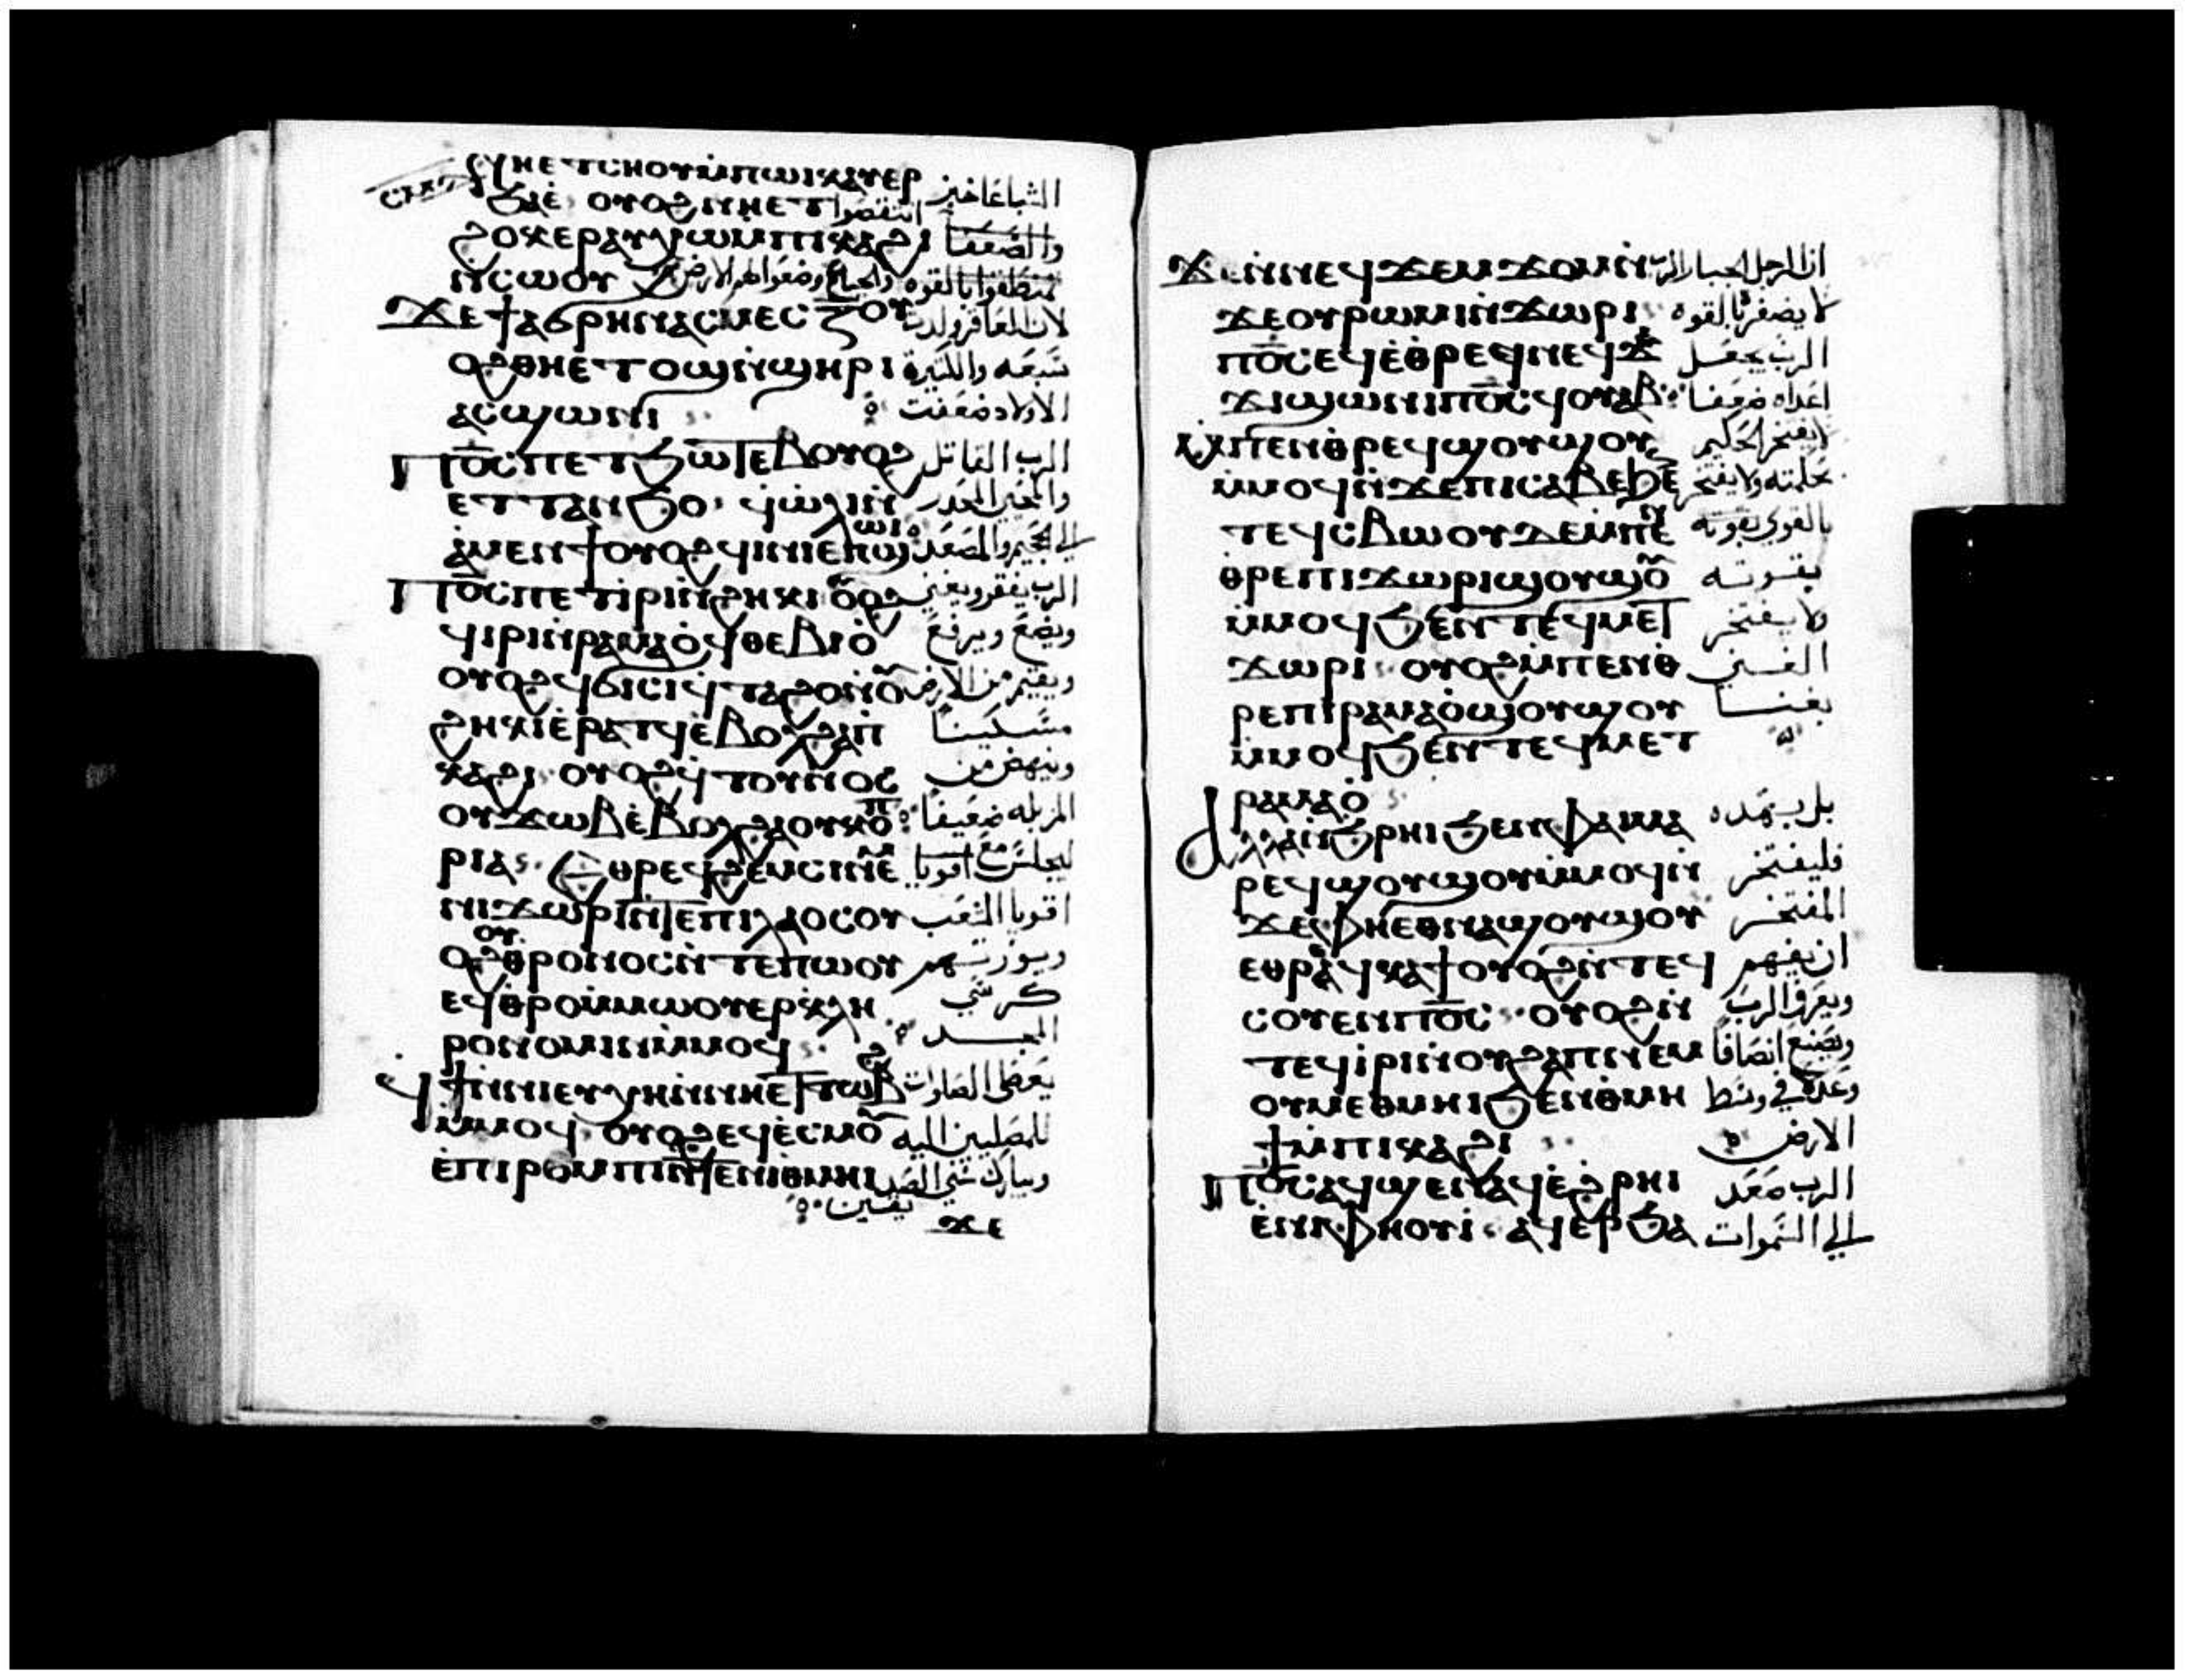 ⲛⲏⲉⲧⲥⲏⲟⲩ ⲙ̀ⲡⲱⲓⲕ ⲁⲩⲉⲣ الشباعا خبز
ϧⲁⲉ̀ ⲟⲩⲟϩ ⲛⲏⲉⲧ انتقصوا
ϩⲟⲕⲉⲣ ⲁⲩⲭⲱ ⲙ̀ⲡⲓⲕⲁϩⲓ والضعفا
ⲛ̀ⲥⲱⲟⲩ تمنطقوا بالقوه والجياع وضعوا لهم الارض
ϫⲉ ϯⲁϭⲣⲏⲛ ⲁⲥⲙⲉⲥ ⲍ̅ ⲟⲩ لان العاقر ولدت
ⲟϩ ⲑⲏⲉⲧⲟϣ ⲛ̀ϣⲏⲣⲓ سبعه والكثيرة
ⲁⲥϣⲱⲛⲓ الاولاد ضعفت
ⲡϭⲥ̅ ⲡⲉⲧϧⲱⲧⲉⲃ ⲟⲩⲟϩ الرب القاتل
ⲉⲧⲧⲁⲛϧⲟ ϥ̀ⲱ̀ⲗⲓ ⲛ̀ والمحيي المحدر
ⲁ̀ⲙⲉⲛϯ ⲟⲩⲟϩ ϥⲓⲛⲓ ⲉ̀ⲡϣⲱⲓ الى الجحيم والمصعد
ⲡϭⲥ̅ ⲡⲉⲧⲓ̀ⲣⲓ ⲛ̀ϩⲏⲕⲓ ⲟⲩⲟϩ الرب يفقر ويغني
ϥⲓⲣⲓ ⲛ̀ⲣⲁⲙⲁⲟ̀ ϥⲑⲉⲃⲓⲟ̀ ويضع ويرفع
ⲟⲩⲟϩ ϥϭⲓⲥⲓ ϥ̀ⲧⲁϩⲟ ⲛ̀ⲟⲩ ويقيم من الارض
ϩⲏⲕⲓ ⲉ̀ⲣⲁⲧϥ ⲉ̀ⲃⲟⲗ ϩⲁ ⲡ̀ مسكينا
ⲕⲁϩⲓ ⲟⲩⲟϩ ϥ̀ⲧⲟⲩⲛⲟⲥ وينهض من
ⲟⲩϫⲱⲃ ⲉ̀ⲃⲟⲗ ϩⲁ ⲟⲩⲕⲟⲡ المزبله ضعيفا
ⲣⲓⲁ ⲉ̀ⲑⲣⲉϥϩⲉⲙⲥⲓ ⲛⲉⲙ ليجلس مع اقويا
ⲛⲓϫⲱⲣⲓ ⲛ̀ⲧⲉ ⲡⲓⲗⲁⲟⲥ ⲟⲩ اقويا الشعب
ⲟϩ ⲟⲩⲑⲣⲟⲛⲟⲥ ⲛ̀ⲧⲉ ⲡⲱⲟⲩ ويورثهم
ⲉϥⲑⲣⲟ ⲙ̀ⲙⲱⲟⲩ ⲉⲣⲕⲗⲏ كرسي
ⲣⲟⲛⲟⲙⲓⲛ ⲙ̀ⲙⲟϥ المجد
ϥϯ ⲛ̀ⲛⲓⲉⲩⲭⲏ ⲛ̀ⲛⲏⲉⲧⲧⲱⲃϩ يعطي الصلوات
ⲙ̀ⲙⲟϥ ⲟⲩⲟϩ ⲉϥⲉ̀ⲥⲙⲟⲩ للمصليين اليه
ⲉ̀ⲡⲓⲣⲟⲙⲡⲓ ⲛ̀ⲧⲉ ⲛⲓⲑⲙⲏⲓ ويبارك سني الصد
يقين
ϫⲉ
ϫⲉ ⲛ̀ⲛⲉϥϫⲉⲙϫⲟⲙ ⲛ̀ ان الرجل الجبار الرب
ϫⲉ ⲟⲩⲣⲱⲙⲓ ⲛ̀ϫⲱⲣⲓ لا يضفر بالقوه
ⲡϭⲥ̅ ⲉϥⲉ̀ⲑⲣⲉϥ ⲛⲉϥϫⲁ الرب يجعل
ϫⲓ ϣⲱⲛⲓ ⲡϭⲥ̅ ϥⲟⲩⲁⲃ اعداه ضعفا
ⲙ̀ⲡⲉⲛⲑⲣⲉϥϣⲟⲩϣⲟⲩ لا يفتخر الحكيم
ⲙ̀ⲙⲟϥ ⲛ̀ϫⲉ ⲡⲓⲥⲁⲃⲉ ϧⲉⲛ بحكمته ولا يفتخر
ⲧⲉϥⲥⲃⲱ ⲟⲩⲇⲉ ⲙ̀ⲡⲉⲛ بالقوي بقوته
ⲑⲣⲉ ⲡⲓϫⲱⲣⲓ ϣⲟⲩϣⲟⲩ بقوته
ⲙ̀ⲙⲟϥ ϧⲉⲛ ⲧⲉϥⲙⲉⲧ ولا يفتخر
ϫⲱⲣⲓ ⲟⲩⲟϩ ⲙ̀ⲡⲉⲛⲑ الغني
ⲣⲉ ⲡⲓⲣⲁⲙⲁⲟ̀ ϣⲟⲩϣⲟⲩ بغناه
ⲙ̀ⲙⲟϥ ϧⲉⲛ ⲧⲉϥⲙⲉⲧ
ⲣⲁⲙⲁⲟ̀
ⲁⲗⲗⲁ ⲛ̀ϧⲣⲏⲓ ϧⲉⲛ ⲫⲁⲓ ⲙⲁ بل بهذه
ⲣⲉϥϣⲟⲩϣⲟⲩ ⲙ̀ⲙⲟϥ ⲛ̀ فليفتخر
ϫⲉ ⲫⲏⲉⲑⲛⲁϣⲟⲩϣⲟⲩ المفتخر
ⲉⲑⲣⲉϥⲕⲁϯ ⲟⲩⲟϩ ⲛ̀ⲧⲉϥ ان يفهم
ⲥⲟⲩⲉⲛ ⲡϭⲥ̅ ⲟⲩⲟϩ ⲛ̀ ويعرف الرب
ⲧⲉϥⲓ̀ⲣⲓ ⲛ̀ⲟⲩϩⲁⲡ ⲛⲉⲙ ويصنع انصافا
ⲟⲩⲙⲉⲑⲙⲏⲓ ϧⲉⲛ ⲑⲙⲏ وعدلا في وسط
ϯ ⲙ̀ⲡⲓⲕⲁϩⲓ الارض
ⲡϭⲥ̅ ⲁϥϣⲉⲛⲁϥ ⲉ̀ϩⲣⲏⲓ الرب صعد
ⲉ̀ⲛⲓⲫⲏⲟⲩⲓ̀ ⲁϥⲉⲣϧⲁ الى السموات